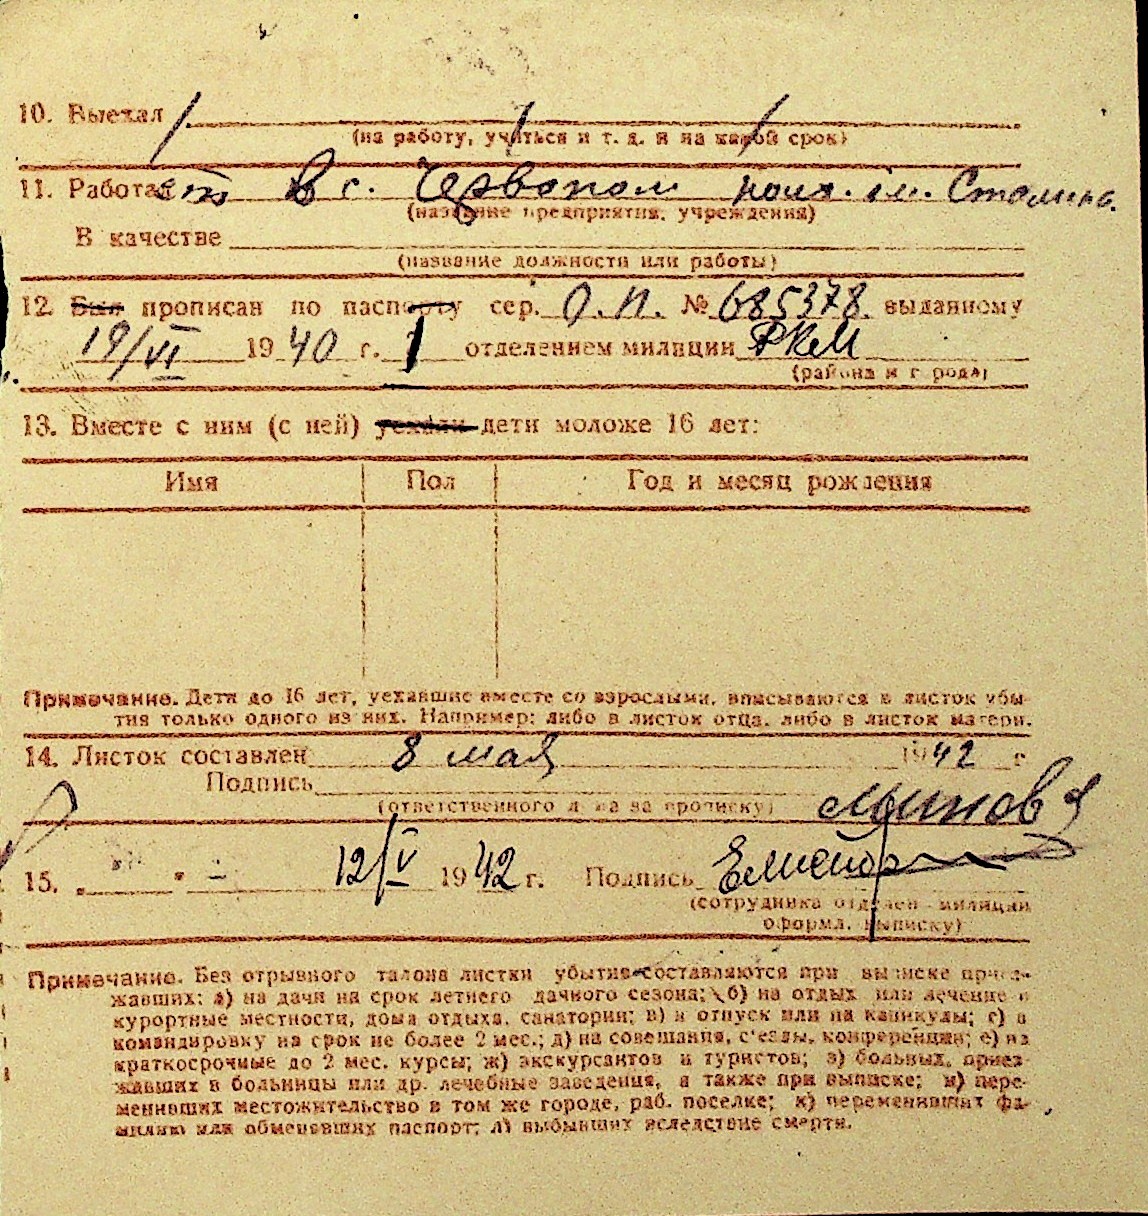 10. Выехал
(на работу, учиться и т. д. и на какой срок)
11. Работает в с. Червоном колх. им. Сталина.
(название предприятия, учреждения)
В качестве
(название должности или работы)
12. Был прописан по паспорту сер. О.П. № 685378 выданному
19/VI 1940 г. 1 отделением милиции РКМ
(района и города)
13. Вместе с ним (с ней) уехали дети моложе 16 лет:
Имя Пол Год и месяц рождения
Примечание. Дети до 16 лет, уехавшие вместе со взрослыми, вписываются в листок убы-
тия только одного из них. Например: либо в листок отца, либо в листок матери.
14. Листок составлен 8 мая 1942 г
Подпись
(ответственного лица за прописку)
15. " " 12/V 1942 г. Подпись
(сотрудника отделен. милиции
оформл. выписку)
Примечание. Без отрывного талона листки убытия составляются при выписке приез-
жавших: а) на дачи на срок летнего дачного сезона; б) на отдых или лечение в
курортные местности, дома отдыха, санатории; в) в отпуск или на каникулы; г) в
командировку на срок не более 2 мес.; д) на совещания, с'езды, конференции; е) на
краткосрочные до 2 мес. курсы; ж) экскурсантов и туристов; з) больных, приез-
жавших в больницы или др. лечебные заведения, а также при выписке; и) пере-
менивших местожительство в том же городе, раб. поселке; к) переменивших фа-
милию или обменевших паспорт; л) выбывших вследствие смерти.